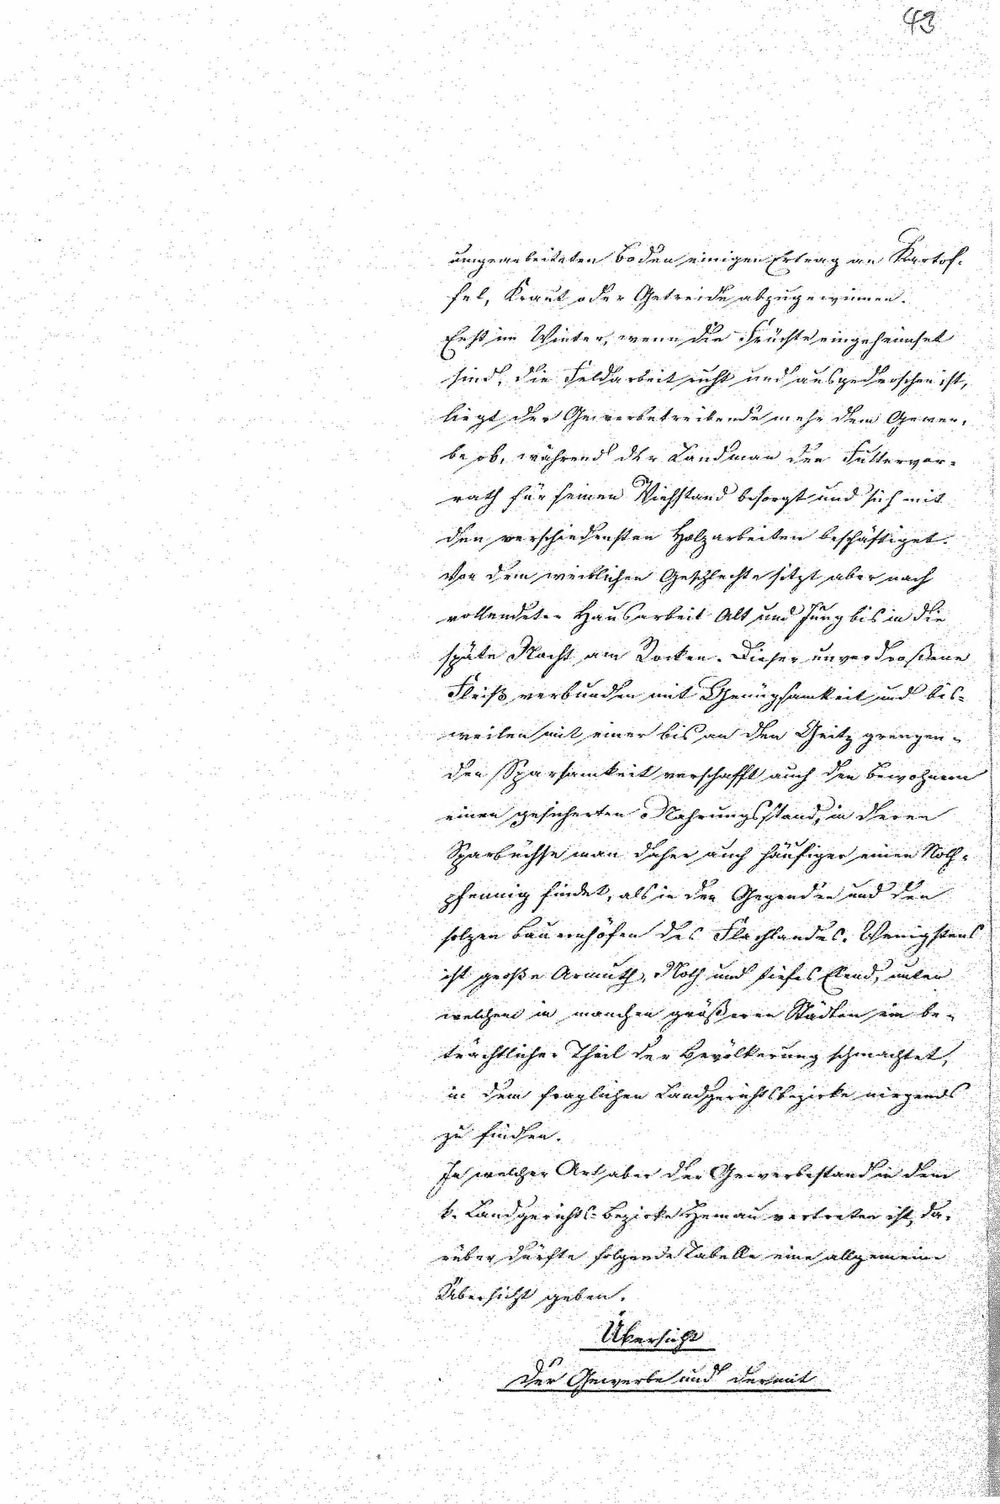 43
umgearbeiteten Boden einigen Ertrag an Kartof-
fel, Kraut oder Getreide abzugewinnen.
Erst im Winter, wenn die Früchte eingeheimset
sind, die Feldarbeit ruht und ausgedroschen ist,
liegt der Gewerbetreibende mehr dem Gewer-
be ob, während der Landman den Futtervor-
rath für seinen Viehstand besorgt und sich mit
den verschiedensten Holzarbeiten beschäftiget.
Von dem weiblichen Geschlechte sitzt aber nach
vollendeter Hausarbeit Alt und Jung bis in die
späte Nacht am Rocken. Dieser unverdroßene
Fleiß verbunden mit Genügsamkeit und bis-
weilen mit einer bis an den Geitz grenzen-
den Sparsamkeit verschafft auch den Bewohnern
einen gesicherten Nahrungsstand, in deren
Sparbüchse man daher auch häufiger einen Noth-
pfennig findet, als in den Gegenden und den
stolzen Bauernhöfen des Flachlandes. Wenigstens
ist große Armuth, Noth und tiefes Elend, unter
welchem in manchen größeren Städten ein be-
trächtlicher Theil der Bevölkerung schmachtet,
in dem fraglichen Landgerichtsbezirke nirgends
zu finden.
In welcher Art aber der Gewerbestand in dem
k. Landgerichts-Bezirke Hemau vertreten ist, da-
rüber dürfte folgende Tabelle eine allgemeine
Übersicht geben.
Übersicht
Der Gewerbe und der mit